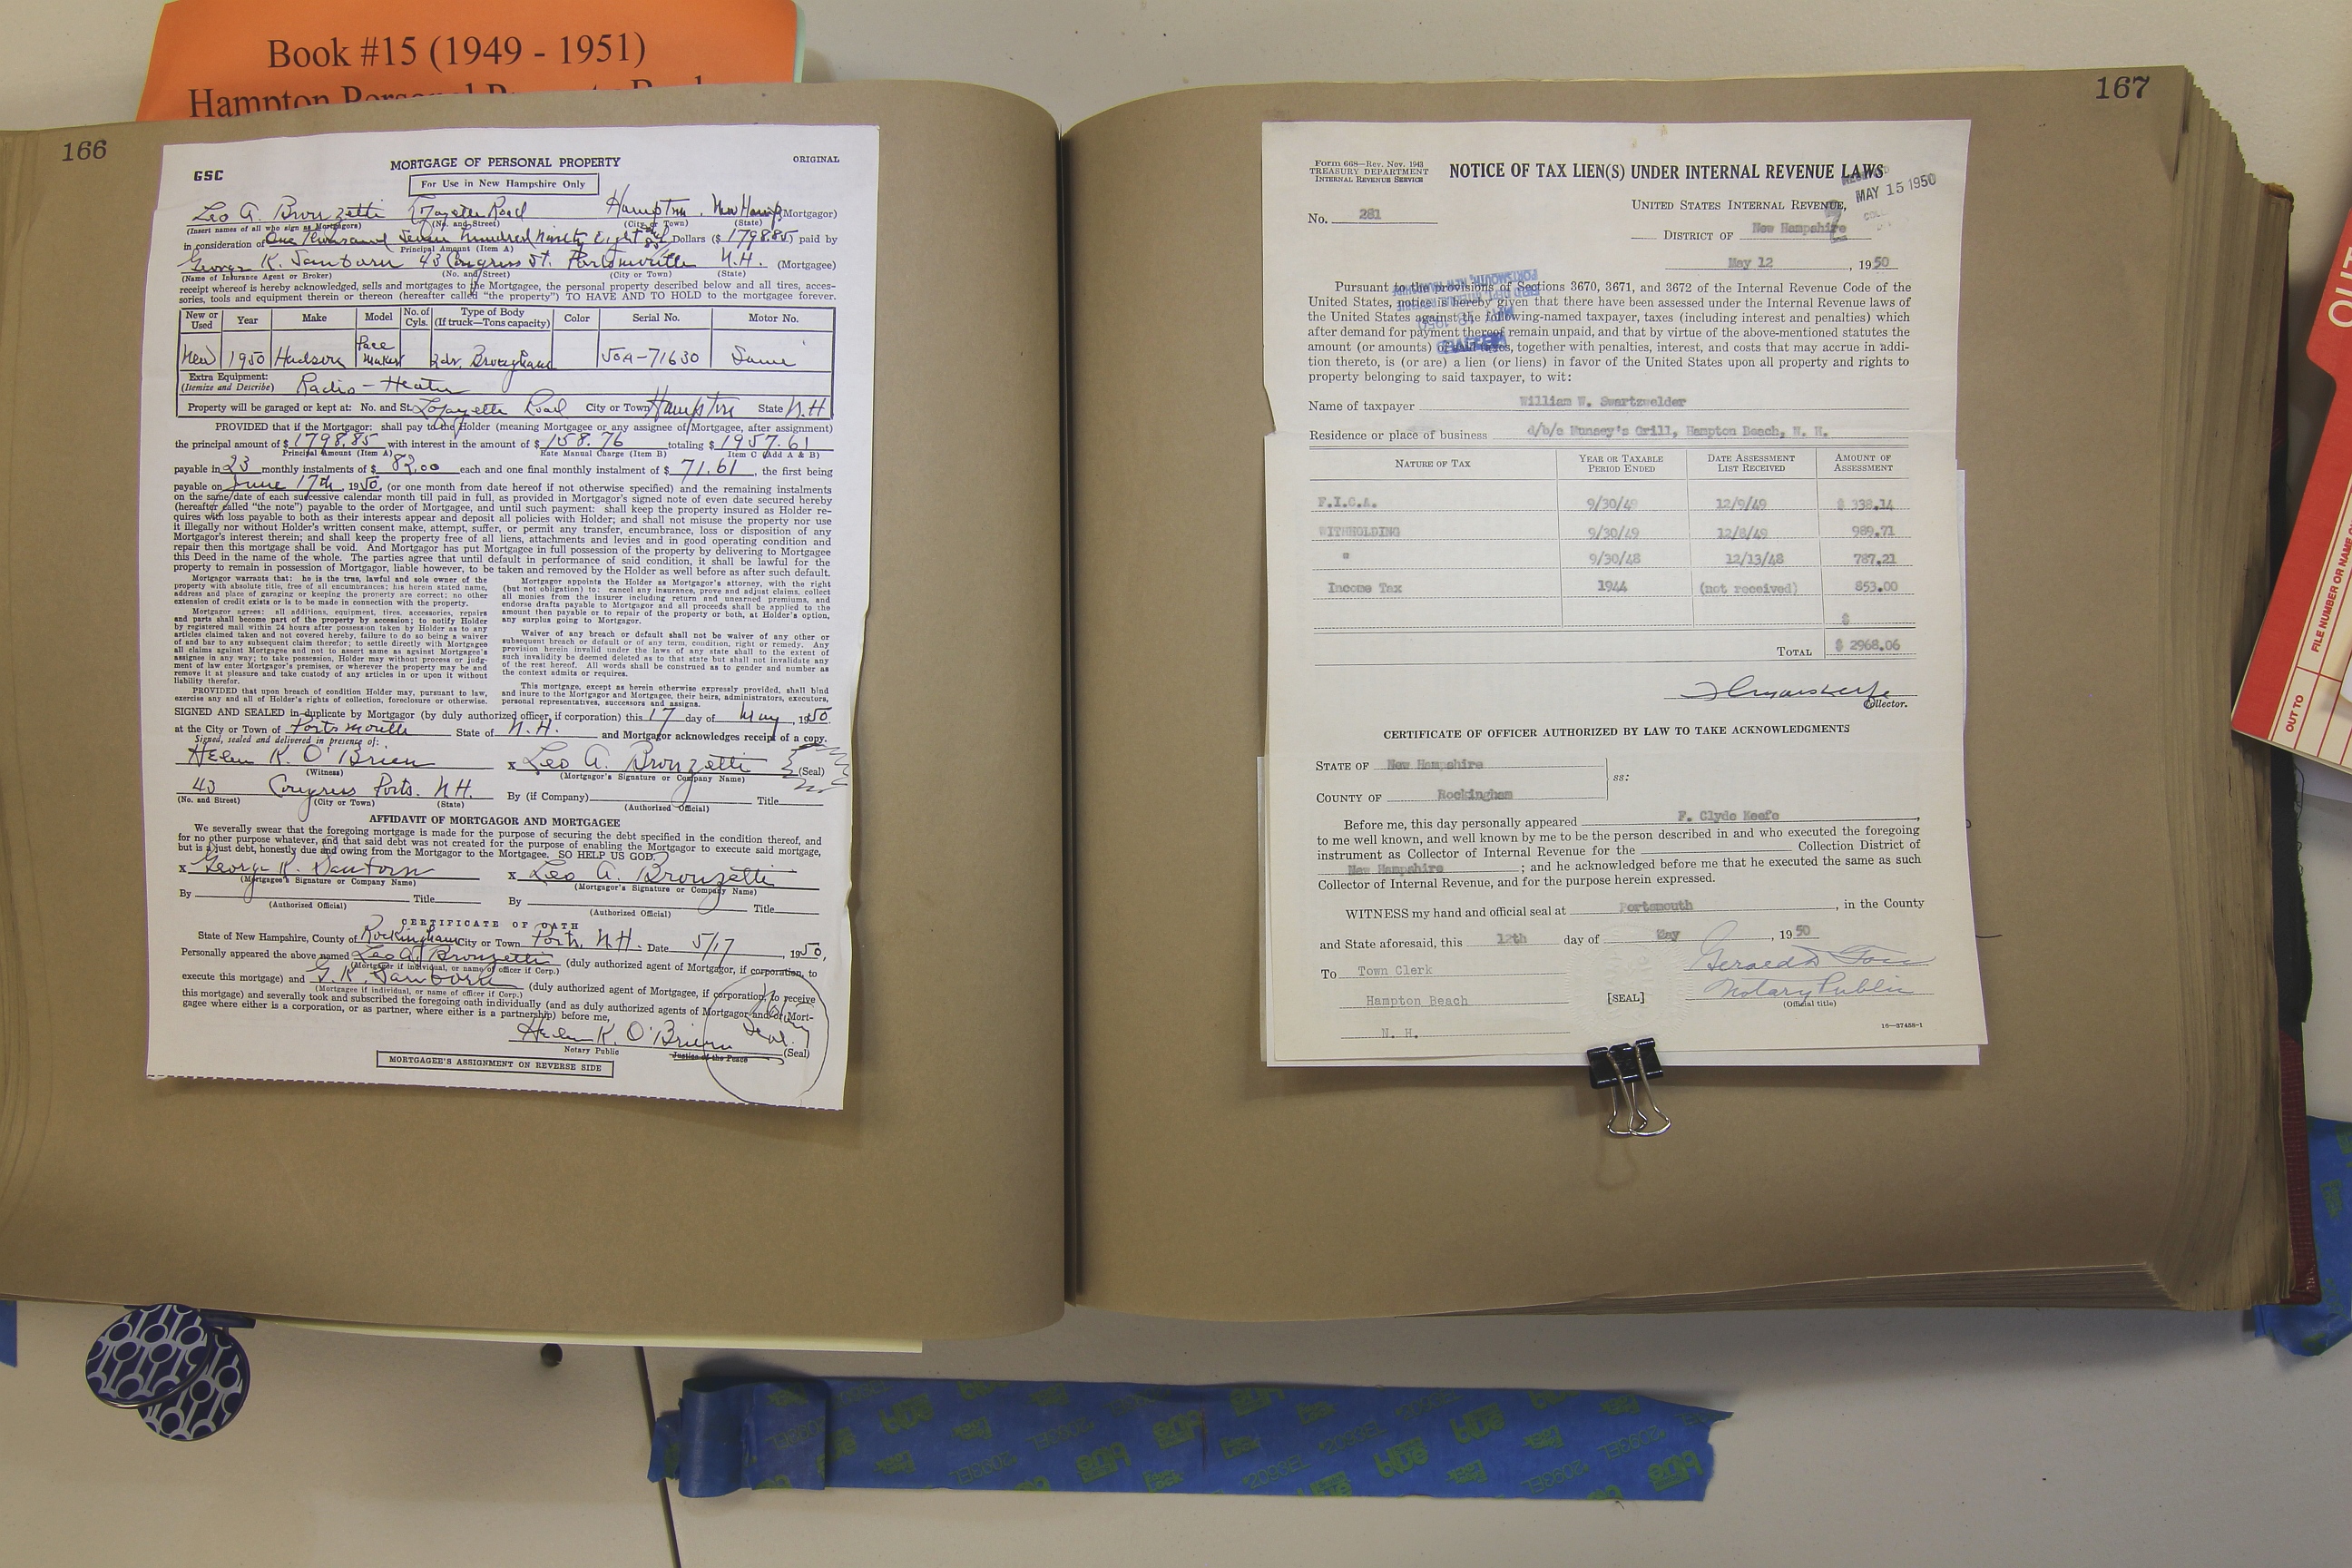 Book #15 (1949 - 1951)
Hampton Personal Property
166
GSC
MORTGAGE OF PERSONAL PROPERTY
ORIGINAL
For Use in New Hampshire Only
Leo A. Bronzetti Lafayette Road Hampton, New Hamp (Mortgagor)
(Insert names of all who sign as Mortgagors) (No. and Street) (City or Town) (State)
in consideration of One thousand Seven hundred ninety Eight Dollars ($ 1798.85) paid by
Principal Amount (Item A)
George K. Sanborn 43 Congress St. Portsmouth N.H. (Mortgagee)
(Name of Insurance Agent or Broker) (No. and Street) (City or Town) (State)
receipt whereof is hereby acknowledged, sells and mortgages to the Mortgagee, the personal property described below and all tires, acces-
sories, tools and equipment therein or thereon (hereafter called "the property") TO HAVE AND TO HOLD to the mortgagee forever.
New or Used Year Make Model No. of Cyls. Type of Body (If truck—Tons capacity) Color Serial No. Motor No.
New 1950 Hudson Pace maker 2 dr. Brougham 50A-71630 Same
Extra Equipment: (Itemize and Describe) Radio - Heater
Property will be garaged or kept at: No. and St. Lafayette Road City or Town Hampton State N.H
PROVIDED that if the Mortgagor: shall pay to the Holder (meaning Mortgagee or any assignee of Mortgagee, after assignment)
the principal amount of $ 1798.85 with interest in the amount of $ 158.76 totaling $ 1957.61
Principal Amount (Item A) Rate Manual Charge (Item B) Item C (Add A & B)
payable in 23 monthly instalments of $ 82.00 each and one final monthly instalment of $ 71.61, the first being
payable on June 17th 1950 (or one month from date hereof if not otherwise specified) and the remaining instalments
on the same date of each successive calendar month till paid in full, as provided in Mortgagor's signed note of even date secured hereby
(hereafter called "the note") payable to the order of Mortgagee, and until such payment: shall keep the property insured as Holder re-
quires with loss payable to both as their interests appear and deposit all policies with Holder; and shall not misuse the property nor use
it illegally nor without Holder's written consent make, attempt, suffer, or permit any transfer, encumbrance, loss or disposition of any
Mortgagor's interest therein; and shall keep the property free of all liens, attachments and levies and in good operating condition and
repair then this mortgage shall be void. And Mortgagor has put Mortgagee in full possession of the property by delivering to Mortgagee
this Deed in the name of the whole. The parties agree that until default in performance of said condition, it shall be lawful for the
property to remain in possession of Mortgagor, liable however, to be taken and removed by the Holder as well before as after such default.
Mortgagor warrants that: he is the true, lawful and sole owner of the
property with absolute title, free of all encumbrances; his herein stated name,
address and place of garaging or keeping the property are correct; no other
extension of credit exists or is to be made in connection with the property.
Mortgagor agrees: all additions, equipment, tires, accessories, repairs
and parts shall become part of the property by accession; to notify Holder
by registered mail within 24 hours after possession taken by Holder as to any
articles claimed taken and not covered hereby, failure to do so being a waiver
of and bar to any subsequent claim therefor; to settle directly with Mortgagee
all claims against Mortgagee and not to assert same as against Mortgagee's
assigns in any way; to take possession, Holder may without process or judg-
ment of law enter Mortgagor's premises, or wherever the property may be and
remove it at pleasure and take custody of any articles in or upon it without
liability therefor.
PROVIDED that upon breach of condition Holder may, pursuant to law,
exercise any and all of Holder's rights of collection, foreclosure or otherwise.
Mortgagor appoints the Holder as Mortgagor's attorney, with the right
(but not obligation) to: cancel any insurance, prove and adjust claims, collect
all monies from the insurer including return and unearned premiums, and
endorse drafts payable to Mortgagor and all proceeds shall be applied to the
amount then payable or to repair of the property or both, at Holder's option,
any surplus going to Mortgagor.
Waiver of any breach or default shall not be waiver of any other or
subsequent breach or default or of any term, condition, right or remedy. Any
provision herein invalid under the laws of any state shall to the extent of
such invalidity be deemed deleted as to that state but shall not invalidate any
of the rest hereof. All words shall be construed as to gender and number as
the context admits or requires.
This mortgage, except as herein otherwise expressly provided, shall bind
and inure to the Mortgagor and Mortgagee, their heirs, administrators, executors,
personal representatives, successors and assigns.
SIGNED AND SEALED in duplicate by Mortgagor (by duly authorized officer, if corporation) this 17 day of May, 1950
at the City or Town of Portsmouth State of N.H. and Mortgagor acknowledges receipt of a copy.
Signed, sealed and delivered in presence of:
Helen K. O'Brien x Leo A. Bronzetti (Seal)
(Witness) (Mortgagor's Signature or Company Name)
43 Congress Ports. N.H. By (if Company) Title
(No. and Street) (City or Town) (State) (Authorized Official)
AFFIDAVIT OF MORTGAGOR AND MORTGAGEE
We severally swear that the foregoing mortgage is made for the purpose of securing the debt specified in the condition thereof, and
for no other purpose whatever, and that said debt was not created for the purpose of enabling the Mortgagor to execute said mortgage,
but is a just debt, honestly due and owing from the Mortgagor to the Mortgagee. SO HELP US GOD.
x George K. Sanborn x Leo A. Bronzetti
(Mortgagee's Signature or Company Name) (Mortgagor's Signature or Company Name)
By Title By Title
(Authorized Official) (Authorized Official)
CERTIFICATE OF OATH
State of New Hampshire, County of Rockingham City or Town Ports, N.H. Date 5/17, 1950,
Personally appeared the above named Leo A. Bronzetti (duly authorized agent of Mortgagor, if corporation, to
(Mortgagor if individual, or name of officer if Corp.)
execute this mortgage) and G. K. Sanborn (duly authorized agent of Mortgagee, if corporation, to receive
(Mortgagee if individual, or name of officer if Corp.)
this mortgage) and severally took and subscribed the foregoing oath individually (and as duly authorized agents of Mortgagor and/or Mort-
gagee where either is a corporation, or as partner, where either is a partnership) before me,
Helen K. O'Brien Seal.
Notary Public Justice of the Peace (Seal)
MORTGAGEE'S ASSIGNMENT ON REVERSE SIDE
167
Form 668—Rev. Nov. 1943
TREASURY DEPARTMENT
INTERNAL REVENUE SERVICE
NOTICE OF TAX LIEN(S) UNDER INTERNAL REVENUE LAWS
MAY 15 1950
No. 281
UNITED STATES INTERNAL REVENUE,
DISTRICT OF New Hampshire
May 12, 1950
Pursuant to the provisions of Sections 3670, 3671, and 3672 of the Internal Revenue Code of the
United States, notice is hereby given that there have been assessed under the Internal Revenue laws of
the United States against the following-named taxpayer, taxes (including interest and penalties) which
after demand for payment thereof remain unpaid, and that by virtue of the above-mentioned statutes the
amount (or amounts) of said taxes, together with penalties, interest, and costs that may accrue in addi-
tion thereto, is (or are) a lien (or liens) in favor of the United States upon all property and rights to
property belonging to said taxpayer, to wit:
Name of taxpayer William W. Swartzwelder
Residence or place of business d/b/a Munsey's Grill, Hampton Beach, N. H.
NATURE OF TAX YEAR OR TAXABLE PERIOD ENDED DATE ASSESSMENT LIST RECEIVED AMOUNT OF ASSESSMENT
F.I.C.A. 9/30/49 12/9/49 $ 338.14
WITHHOLDING 9/30/49 12/8/49 989.71
" 9/30/48 12/13/48 787.21
Income Tax 1944 (not received) 853.00
$
TOTAL $ 2968.06
Collector.
CERTIFICATE OF OFFICER AUTHORIZED BY LAW TO TAKE ACKNOWLEDGMENTS
STATE OF New Hampshire
ss:
COUNTY OF Rockingham
Before me, this day personally appeared F. Clyde Keefe,
to me well known, and well known by me to be the person described in and who executed the foregoing
instrument as Collector of Internal Revenue for the Collection District of
New Hampshire; and he acknowledged before me that he executed the same as such
Collector of Internal Revenue, and for the purpose herein expressed.
WITNESS my hand and official seal at Portsmouth, in the County
and State aforesaid, this 12th day of May, 1950
To Town Clerk
Hampton Beach
N. H.
[SEAL]
Notary Public
(Official title)
16—37458-1
OUT TO
FILE NUMBER OR NAME